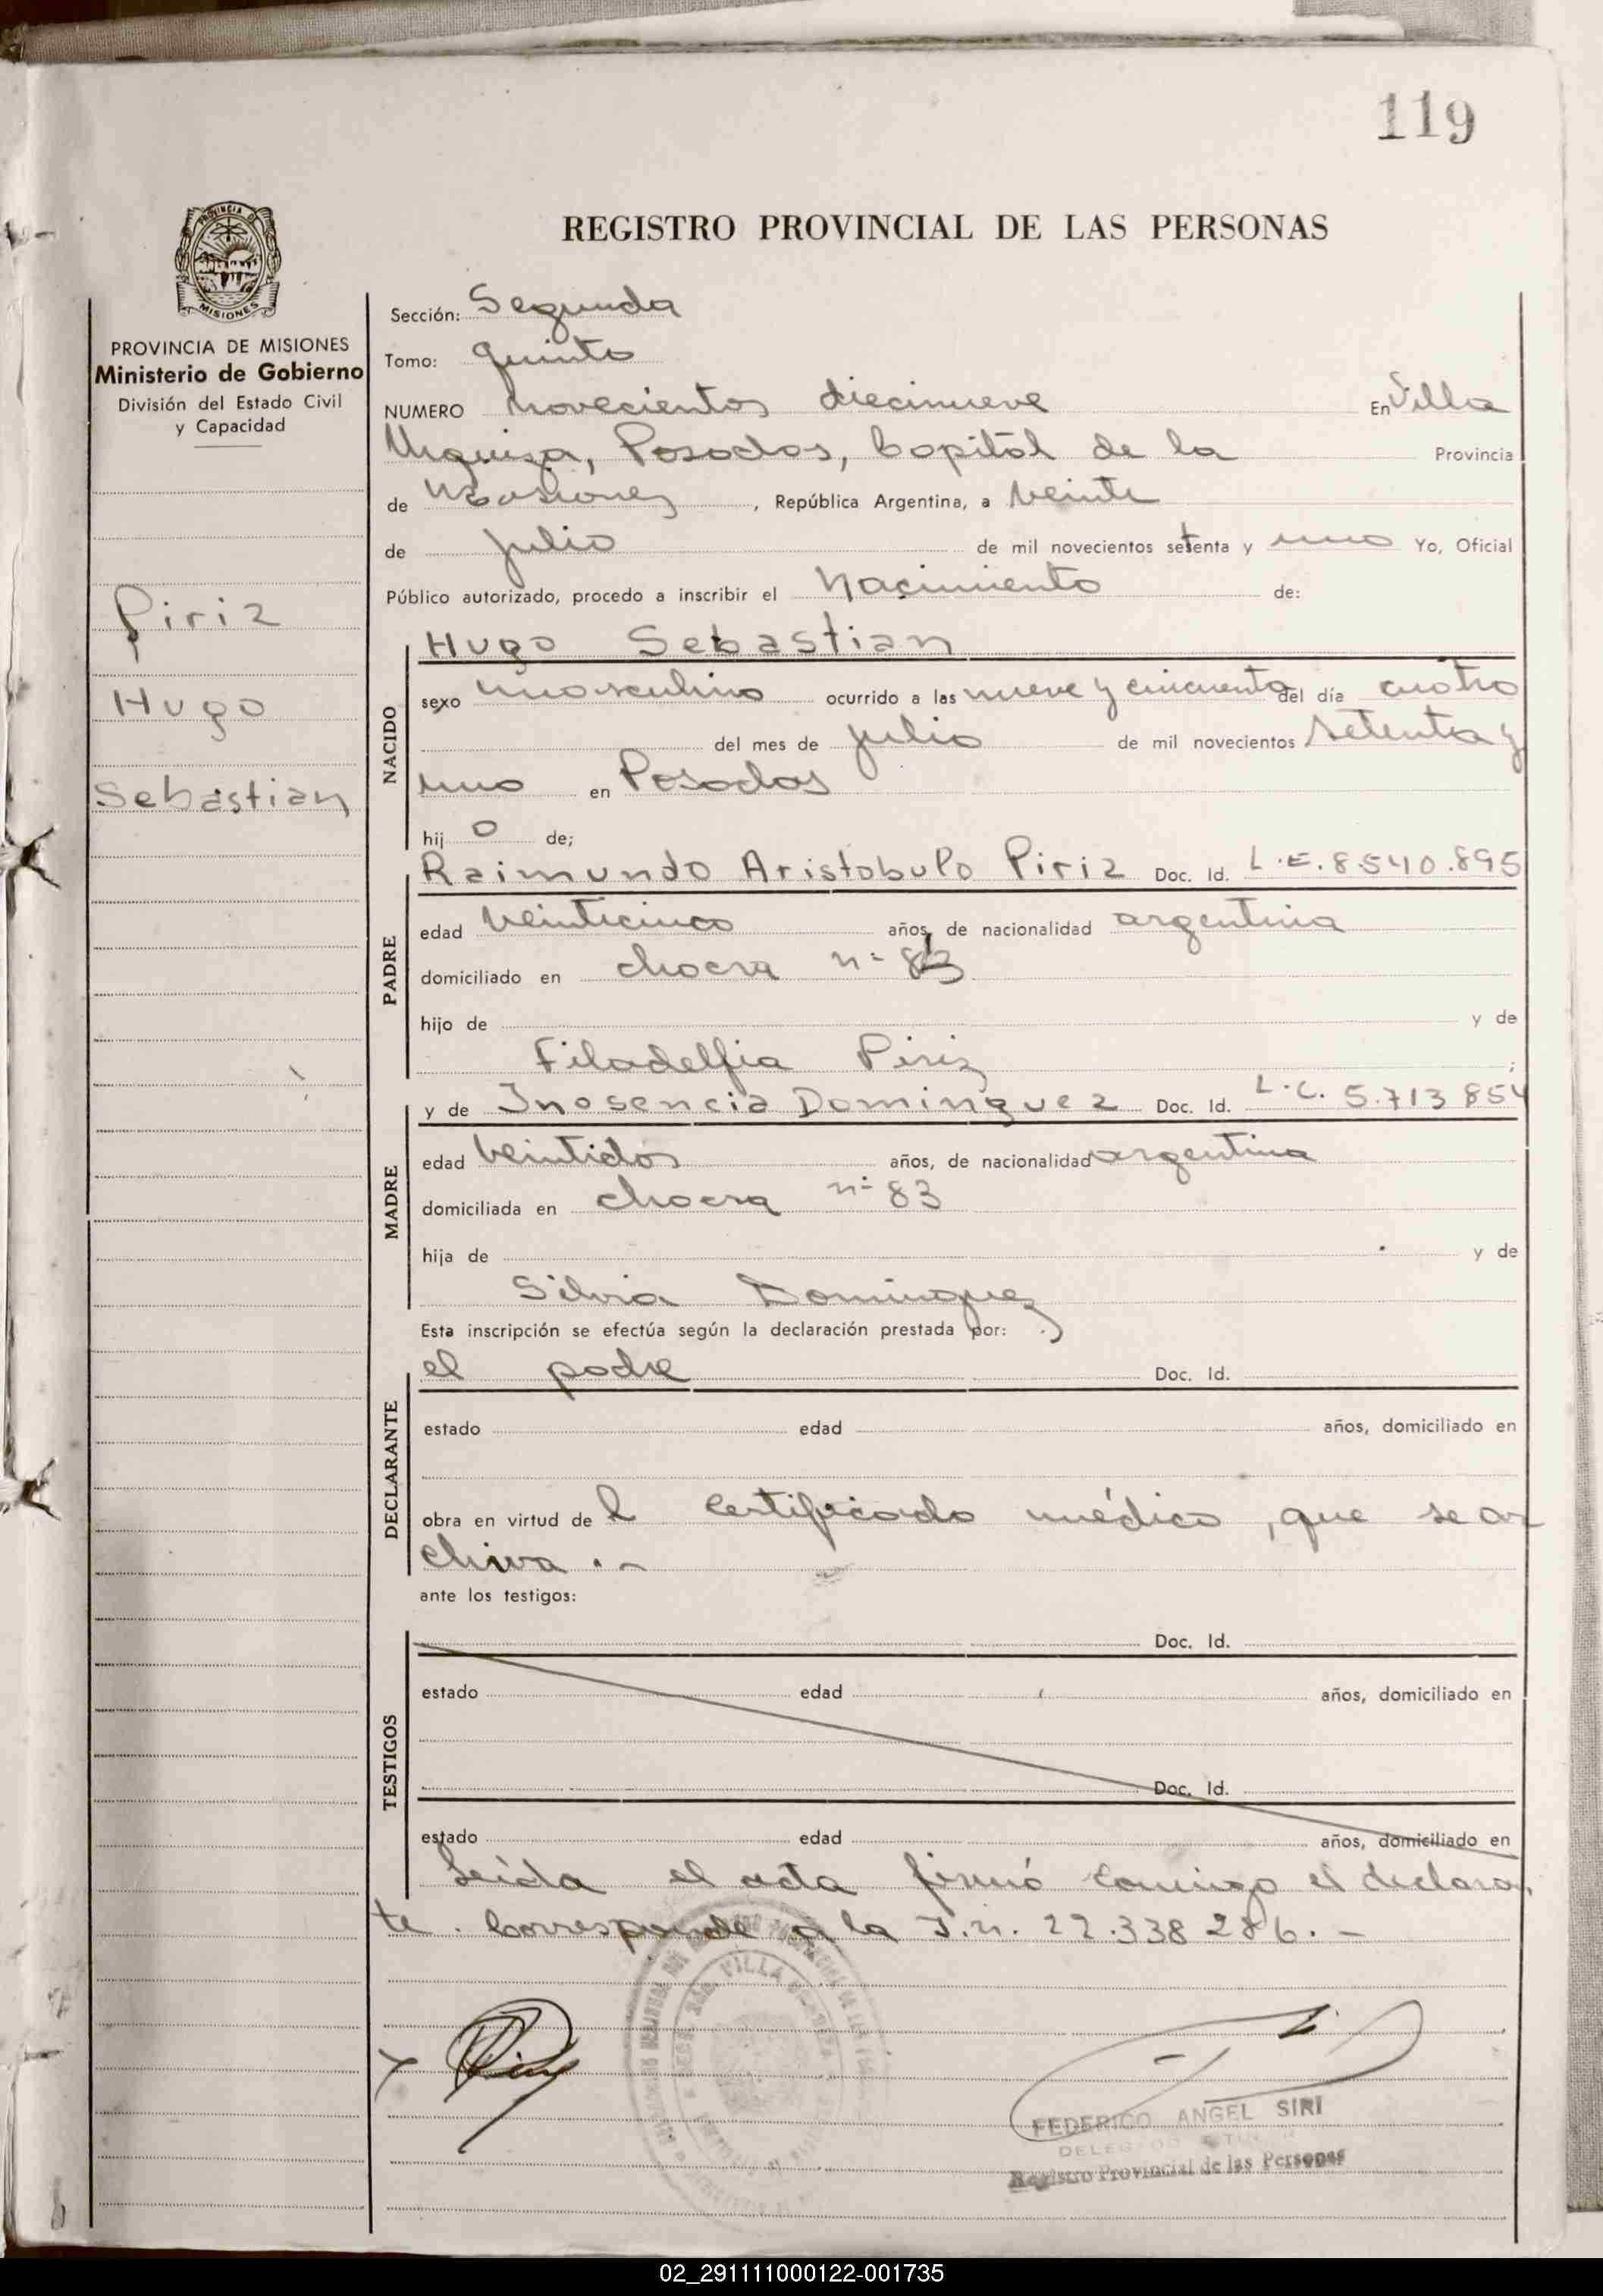 119
PROVINCIA DE
MISIONES
REGISTRO PROVINCIAL DE LAS PERSONAS
PROVINCIA DE MISIONES
Ministerio de Gobierno
División del Estado Civil
y Capacidad
Piriz
Hugo
Sebastian
Sección: Segunda
Tomo: quinto
NUMERO novecientos diecinueve En Villa
Urquiza, Posadas, Capital de la Provincia
de Misiones, República Argentina, a veinte
de julio de mil novecientos setenta y uno Yo, Oficial
Público autorizado, procedo a inscribir el Nacimiento de:
NACIDO
Hugo Sebastian
sexo masculino ocurrido a las nueve y cincuenta del día cuatro
del mes de julio de mil novecientos setenta y
uno en Posadas
hijo de;
PADRE
Raimundo Aristobulo Piriz Doc. Id. L.E. 8.540.895
edad veinticinco años, de nacionalidad argentina
domiciliado en chacra n= 83
hijo de y de
Filadelfia Piriz ;
MADRE
y de Inosencia Dominguez Doc. Id. L.C. 5.713 854
edad veintidos años, de nacionalidad argentina
domiciliada en chacra n= 83
hija de y de
Silvia Dominguez
Esta inscripción se efectúa según la declaración prestada por:
DECLARANTE
el padre Doc. Id.
estado edad años, domiciliado en
obra en virtud del certificado médico, que se ar
chiva .-
ante los testigos:
TESTIGOS
Doc. Id.
estado edad años, domiciliado en
Doc. Id.
estado edad años, domiciliado en
Leída el acta firmó conmigo el declaran
te. Corresponde a la I.n. 22.338 286. -
VILLA
x Piriz
FEDERICO ANGEL SIRI
Registro Provincial de las Personas
02_291111000122-001735